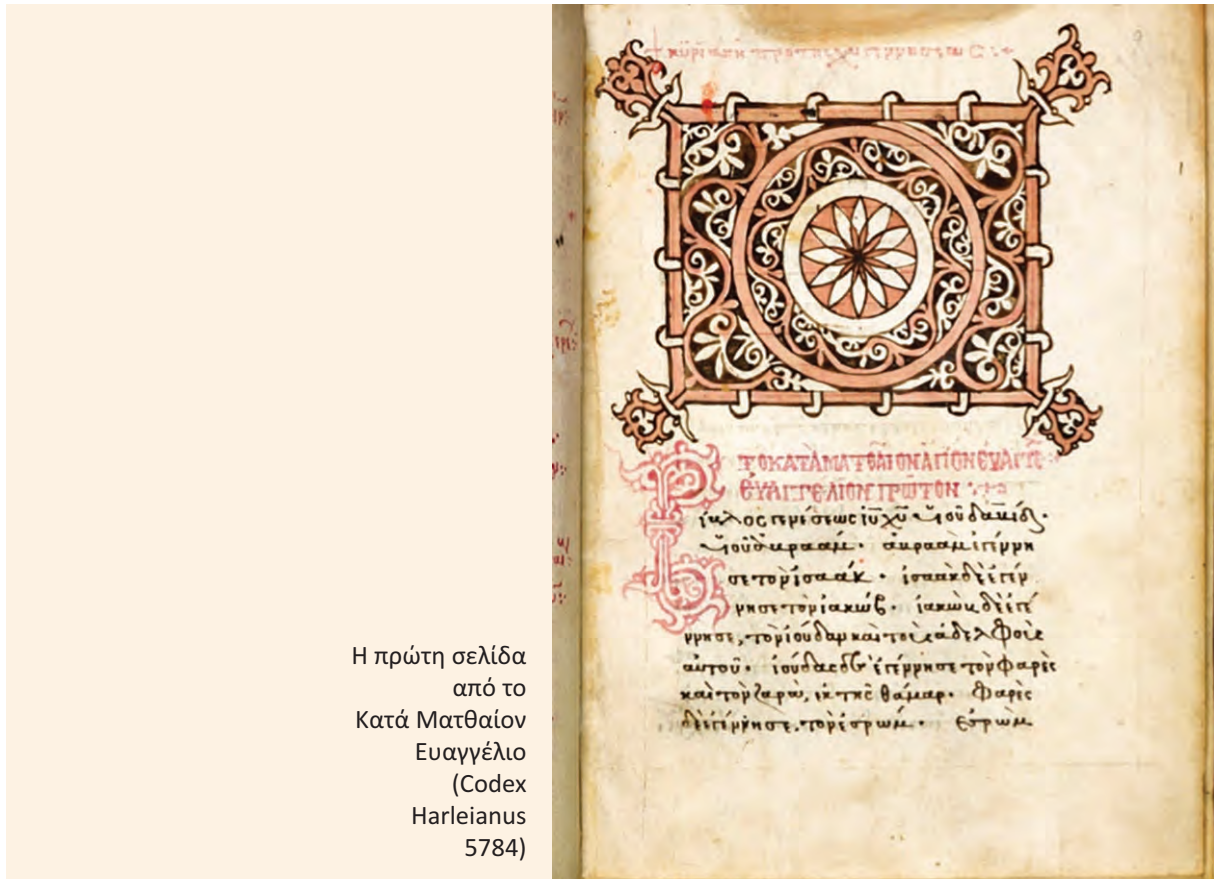 Η πρώτη σελίδα
από το
Κατά Ματθαίον
Ευαγγέλιο
(Codex
Harleianus
5784)
κυριακη προ της χυ
ΤΟ ΚΑΤΑ ΜΑΤΘΑΙΟΝ ΑΓΙΟΝ
ΕΥΑΓΓΕΛΙΟΝ ΠΡΩΤΟΝ
Βίβλος γενέσεως ιυ χυ υιού δαυίδ·
υιού αβραάμ· αβραάμ εγέννη
σε τὸν ισαάκ· ισαάκ δὲ εγέν
νησε τὸν ιακώβ· ιακώβ δὲ εγέ
ννησε, τὸν ιούδαν καὶ τοὺς αδελφοὺς
αυτοῦ· ιούδας δὲ εγέννησε τὸν φαρὲς
καὶ τὸν ζαρὰ, εκ τῆς θάμαρ· φαρὲς
δὲ εγέννησε, τὸν εσρώμ· εσρώμ